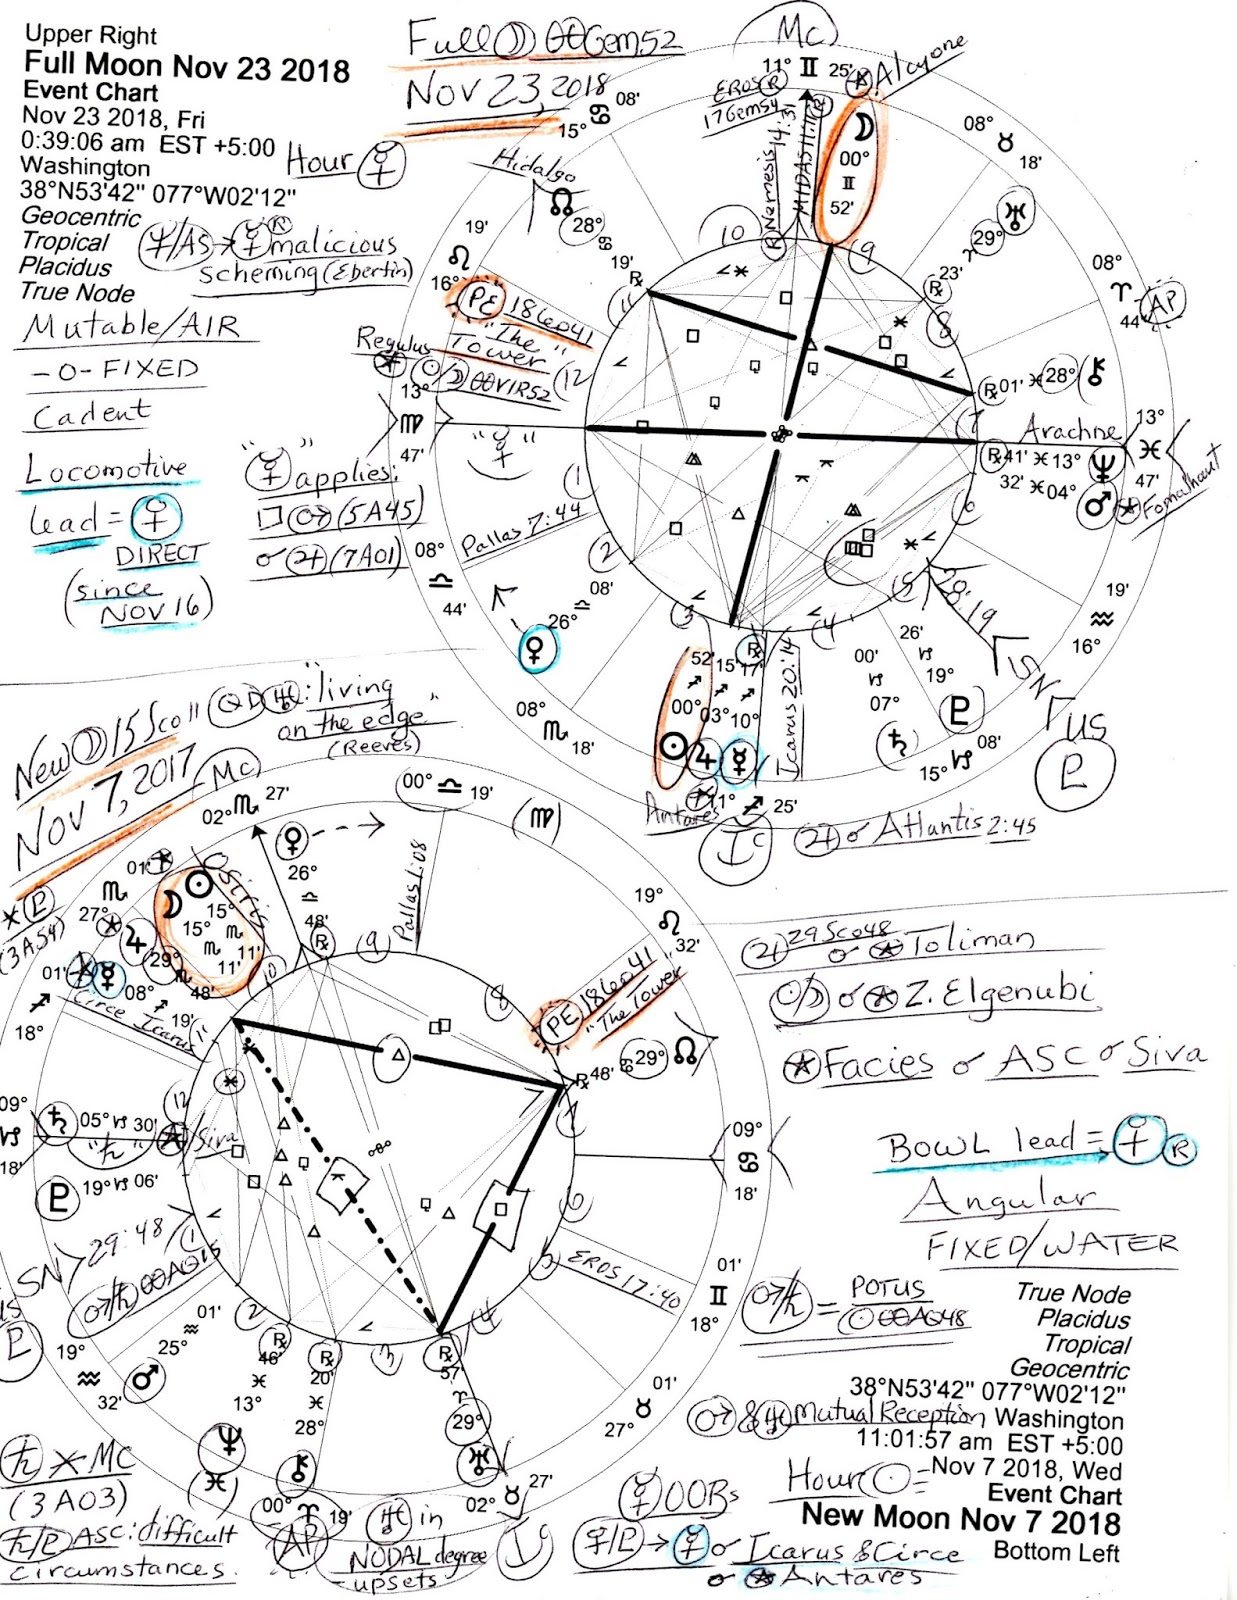 Upper Right
Full Moon Nov 23 2018
Event Chart
Nov 23 2018, Fri
0:39:06 am EST +5:00
Washington
38°N53'42" 077°W02'12"
Geocentric
Tropical
Placidus
True Node
Hour ☿
♆/AS→☿ ℞ malicious
scheming (Ebertin)
Mutable/AIR
-0- FIXED
Cadent
Locomotive
lead = ♀
DIRECT
(since
NOV 16)
"☿" applies:
□ ♂ (5A45)
☌ ♃ (7A01)
Full ☽ 00Gem52
Nov 23, 2018
Mc
11° ♊ 25'
Alcyone
EROS ℞
17Gem54
℞ Nemesis 14:31
MIDAS
☽
00°
♊
52'
08' ♋ 15°
08° ♉ 18'
Hidalgo
☊
28°
♋
19'
℞
♅
29°
♈
23'
℞
19' ♌ 16°
PE 18Leo41
"The Tower"
Regulus
☉/☽ 00VIR52
08° ♈ 44'
AP
℞ 01' ♓ 28° ⚷
13° ♍ 47'
"☿"
Arachne
13° ♓ 47'
℞ 41' ♓ 13° ♆
32' ♓ 04° ♂
Fomalhaut
Pallas 7:44
08° ♎ 44'
08'
♎
26°
♀
19' ♒ 16°
28:19
SN
US
♇
26'
♑
19°
♇
00'
♑
07°
♄
08' ♑ 15°
08° ♏ 18'
52' 15' 17'
♐ ♐ ♐
00° 03° 10°
☉ ♃ ☿
℞
Icarus 20:14
Antares
11° ♐ 25'
Ic
♃ ☌ Atlantis 2:45
10 9 8 7 6 5 4 3 2 1 12 11
New ☽ 15Sco11
Nov 7, 2017
☉☽♅: "living
on the edge"
(Reeves)
Mc
02° ♏ 27'
00° ♎ 19'
♍
♀
26°
♎
48'
℞
Pallas 1:08
Osiris
☽ ☉
15° 15°
♏ ♏
11' 11'
01' ♏ 27°
✶ ♇
(3A54)
♃ 29° ♏ 48'
☿ 08° ♐ 19'
01' ♐ 18°
Circe Icarus
19° ♌ 32'
PE 18Leo41
"The Tower"
℞ 48' ♋ 29° ☊
09° ♑ 18'
♄ 05° ♑ 30'
"♄"
Siva
♇ 19° ♑ 06'
09° ♋ 18'
SN 29:48
♂/♄ 00AQ15
US
♇
EROS 17:40
01' ♊ 18°
19° ♒ 32'
01'
♒
25°
♂
℞
46'
♓
13°
♆
♓
℞
20'
♓
28°
⚷
℞
57'
♈
29°
♅
01' ♉ 27°
02° ♉ 27'
Ic
00° ♈ 19'
AP
♄ ✶ MC
(3A03)
♄/♇ ASC: difficult
circumstances.
♅ in
NODAL degree
- upsets
♃ 29Sco48
☌ Toliman
☉/☽ ☌ Z. Elgenubi
Facies ☌ ASC ☌ Siva
BOWL lead = ♀ ℞
Angular
FIXED/WATER
♂/♄ = POTUS
☉ 00AQ48
♂ & ♅ Mutual Reception
☿ OOBs
♀/♇ → ☿ ☌ Icarus & Circe
☌ Antares
Hour ☉ =
True Node
Placidus
Tropical
Geocentric
38°N53'42" 077°W02'12"
Washington
11:01:57 am EST +5:00
Nov 7 2018, Wed
Event Chart
New Moon Nov 7 2018
Bottom Left